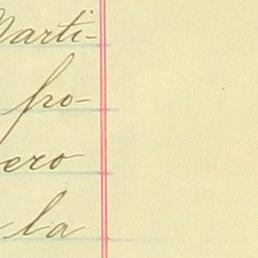 Marti-
po-
ero
la